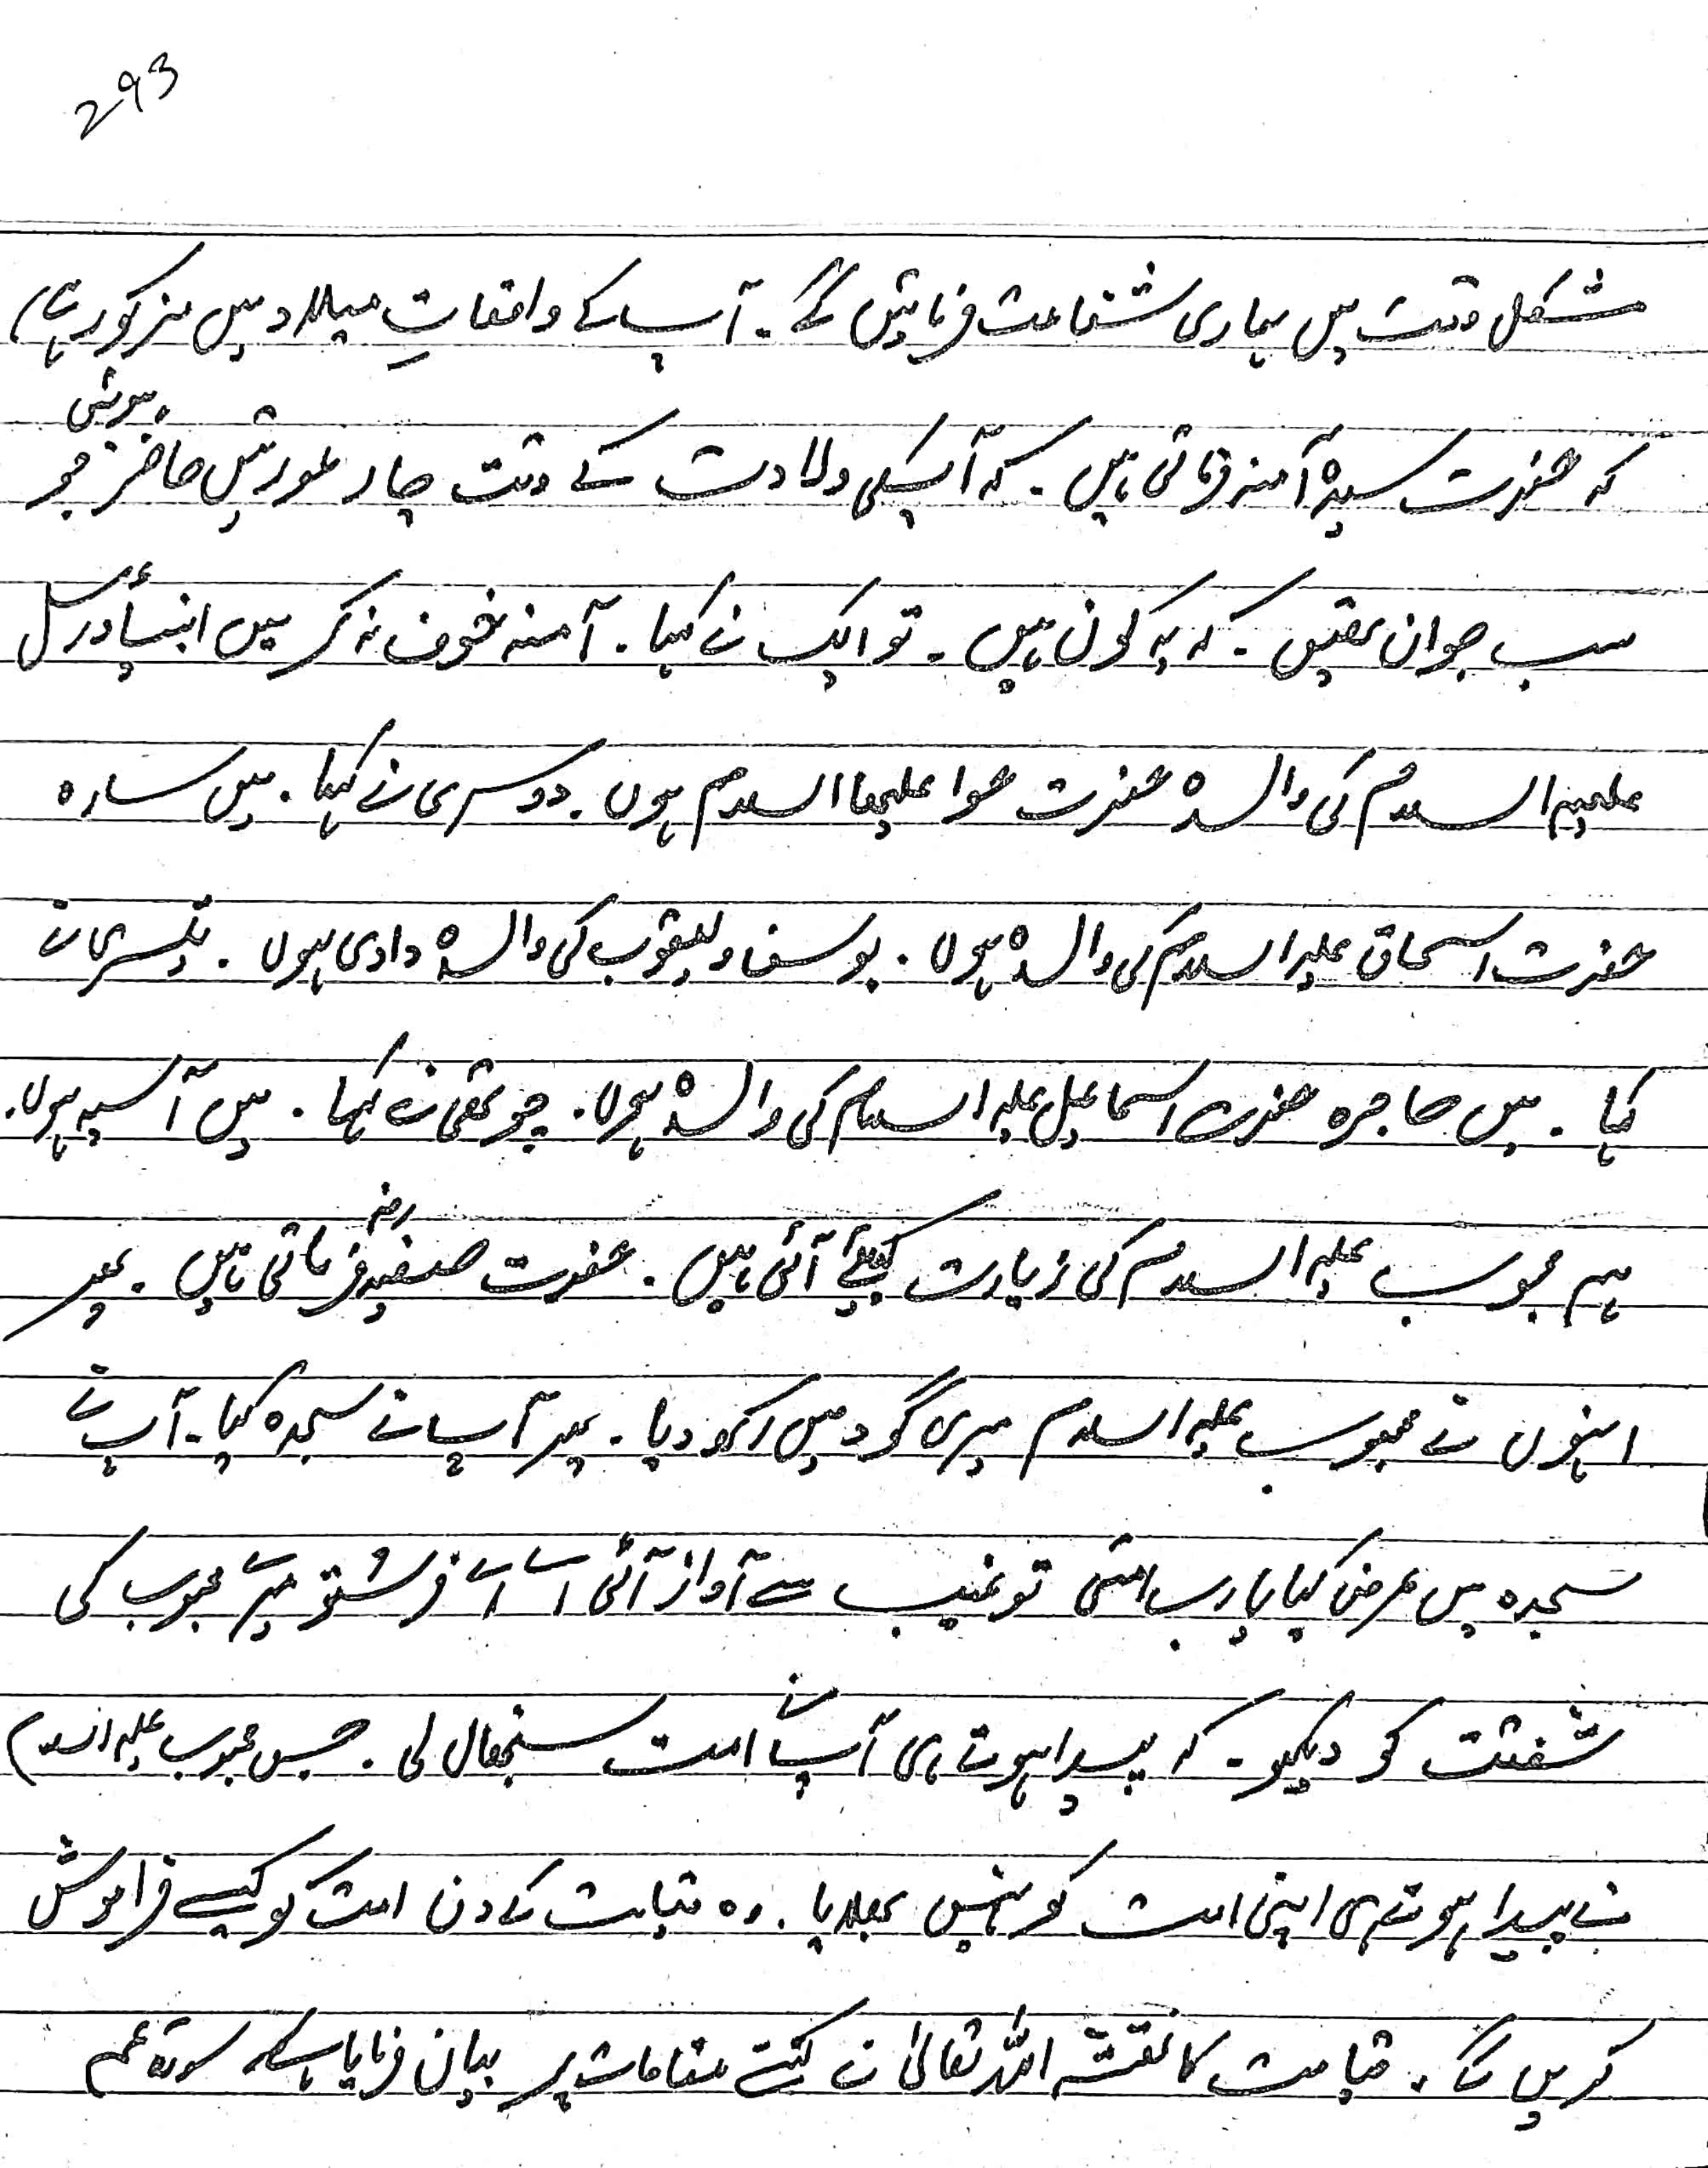 293
مشکل وقت میں ہماری شفاعت فرمائیں گے۔ آپ کے واقعاتِ میلاد میں مذکور ہے
کہ حضرت سیدہ آمنہ فرماتی ہیں۔ کہ آپکی ولادت کے وقت چار عورتیں حاضر ہوئیں جو
سب جوان تھیں۔ کہ یہ کون ہیں۔ تو ایک نے کہا۔ آمنہ خوف نہ کر میں انبیأ و رسل
علیہم السلام کی والدہ حضرت حوا علیھا السلام ہوں۔ دوسری نے کہا۔ میں سارہ
حضرت اسحاق علیہ السلام کی والدہ ہوں۔ یوسف و یعقوب کی والدہ دادی ہوں۔ تیسری نے
کہا۔ میں حاجرہ حضرت اسماعیل علیہ السلام کی والدہ ہوں۔ چوتھی نے کہا۔ میں آسیہ ہوں۔
ہم محبوب علیہ السلام کی زیارت کیلئے آئی ہیں۔ حضرت صفیہ رضہ فرماتی ہیں۔ پھر
انہوں نے محبوب علیہ السلام میری گود میں رکھ دیا۔ پھر آپ نے سجدہ کیا۔ آپ نے
سجدہ میں عرض کیا یا رب امتی تو غیب سے آواز آئی اے اے فرشتو میرے محبوب کی
شفقت کو دیکھو۔ کہ پیدا ہوتے ہی آپ نے امت سنبھال لی۔ جس محبوب علیہ السلام
نے پیدا ہوتے ہی اپنی امت کو نہیں بھلایا۔ وہ قیامت کے دن امت کو کیسے فراموش
کریں گے۔ قیامت کا نقشہ اللہ تعالیٰ نے کتنے مقامات پر بیان فرمایا ہے۔ سورۃ عم